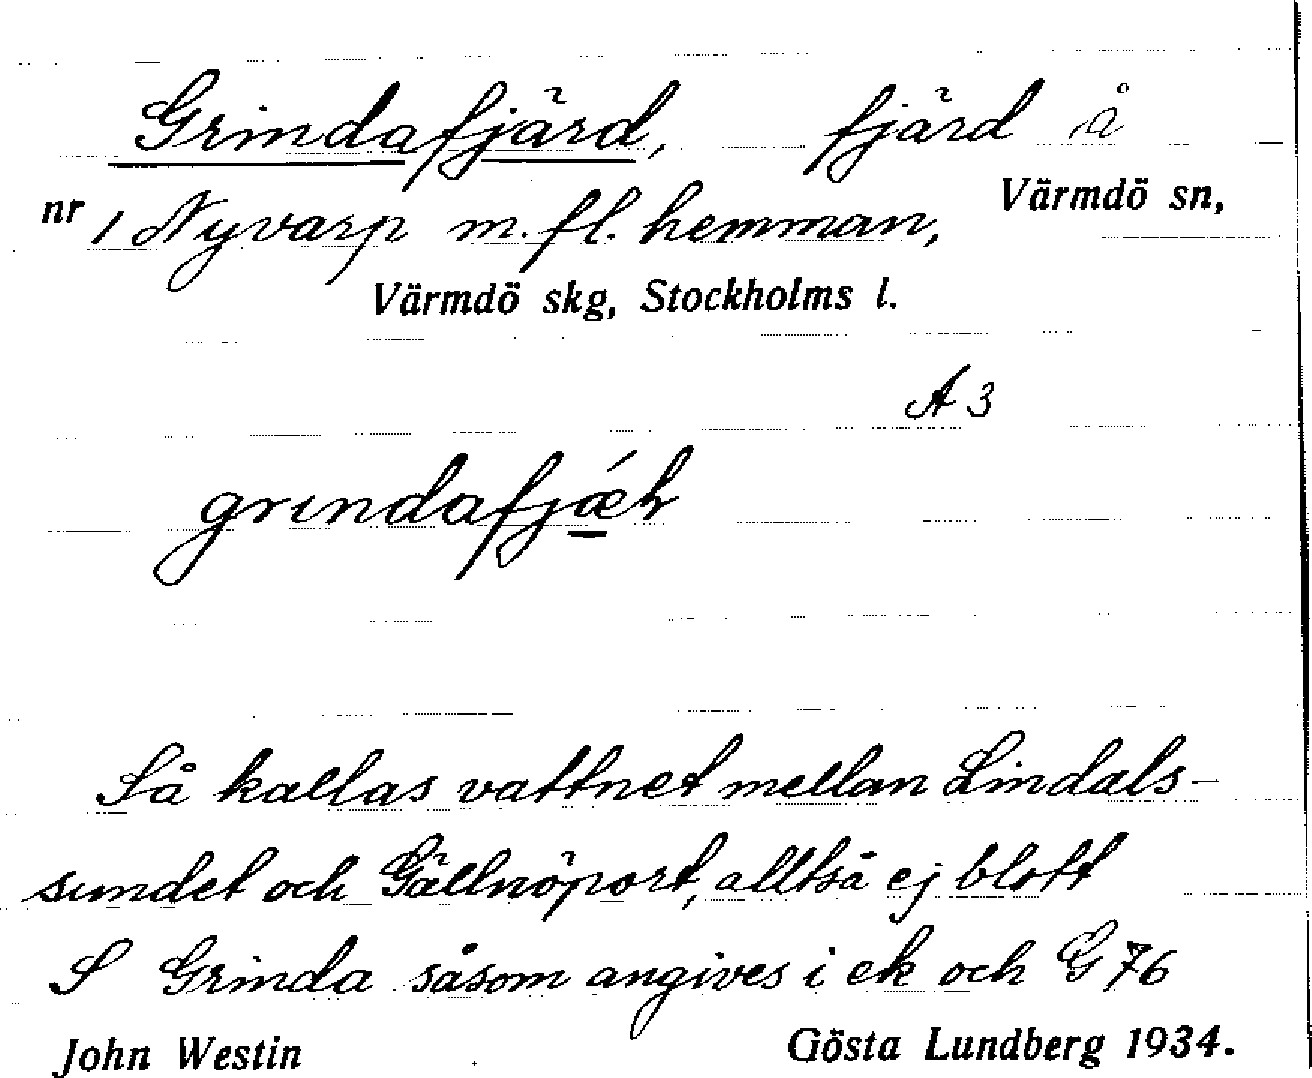 Grindafjärd, fjärd å
nr 1 Nyvarp m. fl. hemman, Värmdö sn,
Värmdö skg, Stockholms l.
A 3
Så kallas vattnet mellan Lindals-
sundet och Gällnöport, alltså ej blott
S Grinda såsom angives i ek och G 76
John Westin Gösta Lundberg 1934.